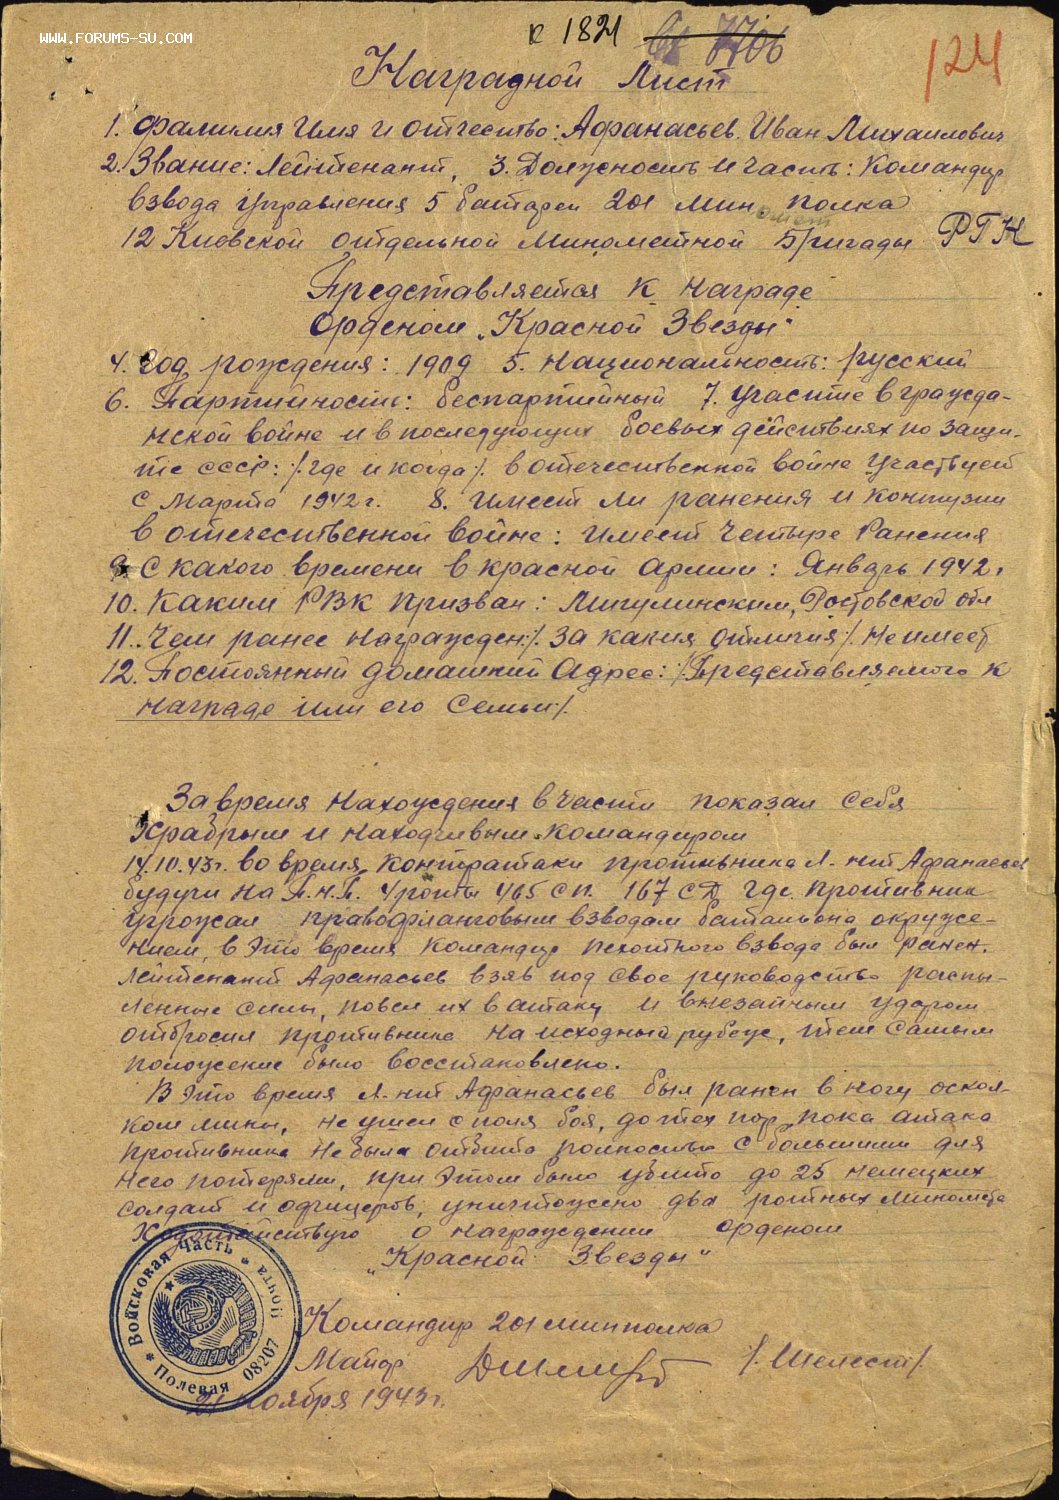 WWW.FORUMS-SU.COM
к 1821
124
Наградной Лист
1. Фамилия Имя и отчество: Афанасьев Иван Михайлович
2. Звание: Лейтенант, 3. Должность и часть: Командир
взвода управления 5 батареи 201 мин полка
12 Киевской отдельной Минометной Бригады РГК
Представляется к Награде
Орденом „Красной Звезды"
4. Год рождения: 1909 5. Национальность: русский
6. Партийность: беспартийный 7. участие в гражда-
нской войне и в последующих боевых действиях по защи-
те СССР: /. где и когда /. в отечественной войне участвует
с Марта 1942 г. 8. Имеет ли ранения и контузии
в отечественной войне: Имеет Четыре Ранения
9. С какого времени в красной армии: Январь 1942г
10. Каким РВК призван: Мигулинским, Ростовской обл
11. Чем ранее награжден /. За какия отличия /. Не имеет
12. Постоянный домашний Адрес: /. Представляемого к
награде или его семьи /.
За время нахождения в части показал себя
Храбрым и находчивым командиром
14.10.43г. во время контратаки противника Л-нт Афанасьев
будучи на П.Н.П. 4 роты 465 сп. 167 СД где противник
угрожал правофланговым взводам батальона окруже-
нием, в это время командир пехотного взвода был ранен.
Лейтенант Афанасьев взяв под свое руководство распы-
ленные силы, повел их в атаку и внезапным ударом
отбросил противника на исходный рубеж, тем самым
положение было восстановлено.
В это время Л-нт Афанасьев был ранен в ногу оскол-
ком мины, не ушел с поля боя, до тех пор пока атака
противника не была отбита полностью с большими для
него потерями, при этом было убито до 25 немецких
солдат и офицеров, уничтожено два ротных миномета
Ходатайствую о награждении орденом
„Красной Звезды"
Командир 201 минполка
Майор /. Шелест /.
21 ноября 1943г.
Войсковая Часть * Полевая почта 08207 *